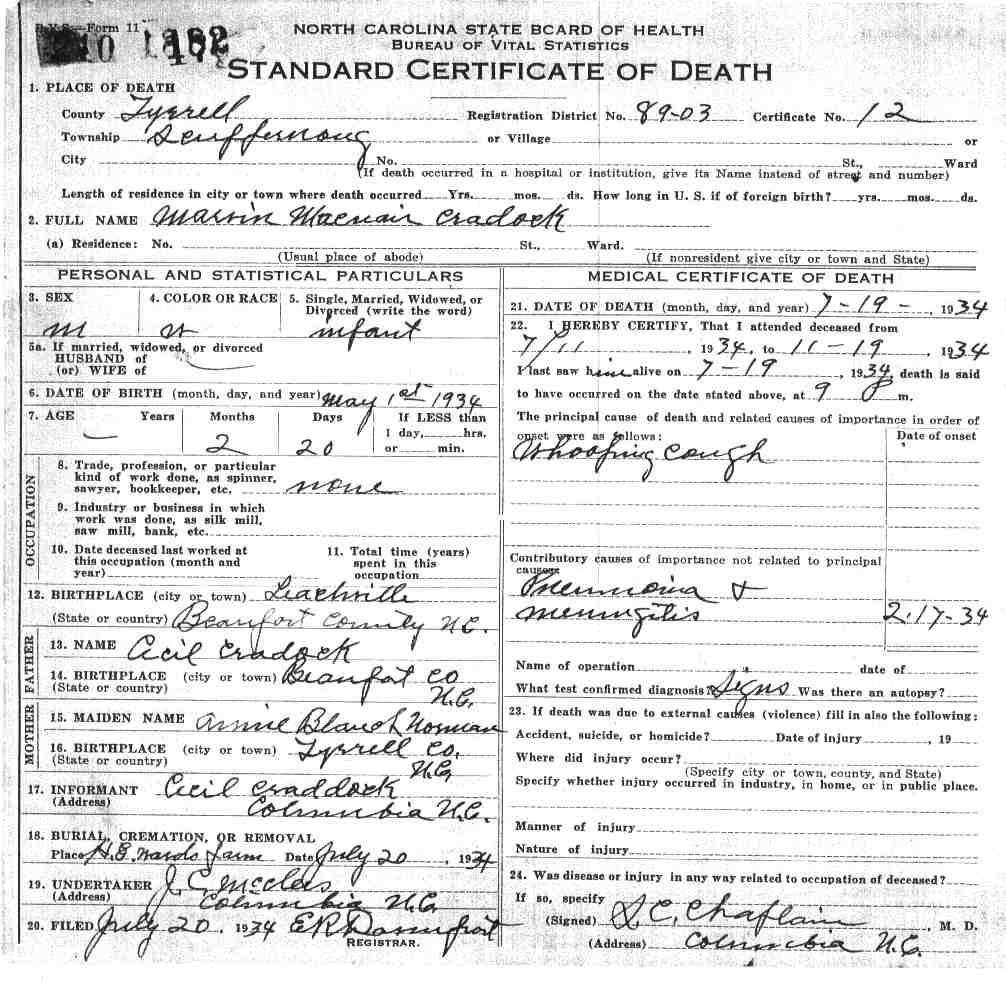 Form 11
NORTH CAROLINA STATE BOARD OF HEALTH
BUREAU OF VITAL STATISTICS
STANDARD CERTIFICATE OF DEATH
1. PLACE OF DEATH
County Tyrrell Registration District No. 89-03 Certificate No. 12
Township Scuppernong or Village or
City No. St., Ward
(If death occurred in a hospital or institution, give its Name instead of street and number)
Length of residence in city or town where death occurred Yrs. mos. ds. How long in U. S. if of foreign birth? yrs. mos. ds.
2. FULL NAME Marvin Macnair Cradock
(a) Residence: No. St., Ward.
(Usual place of abode) (If nonresident give city or town and State)
PERSONAL AND STATISTICAL PARTICULARS
3. SEX 4. COLOR OR RACE 5. Single, Married, Widowed, or
Divorced (write the word)
M W infant
5a. If married, widowed, or divorced
HUSBAND of
(or) WIFE of
6. DATE OF BIRTH (month, day, and year) May 1st 1934
7. AGE Years Months Days If LESS than
1 day, hrs.
or min.
2 20
OCCUPATION
8. Trade, profession, or particular
kind of work done, as spinner,
sawyer, bookkeeper, etc. none
9. Industry or business in which
work was done, as silk mill,
saw mill, bank, etc.
10. Date deceased last worked at
this occupation (month and
year)
11. Total time (years)
spent in this
occupation
12. BIRTHPLACE (city or town) Leachville
(State or country) Beaufort County N.C.
FATHER
13. NAME Cecil Cradock
14. BIRTHPLACE (city or town) Beaufort Co
(State or country) N.C.
MOTHER
15. MAIDEN NAME Annie Blanch Norman
16. BIRTHPLACE (city or town) Tyrrell Co.
(State or country) N.C.
17. INFORMANT Cecil Craddock
(Address) Columbia N.C.
18. BURIAL, CREMATION, OR REMOVAL
Place Farm Date July 20, 1934
19. UNDERTAKER J. C. McClees
(Address) Columbia N.C.
20. FILED July 20, 1934 Davenport
REGISTRAR.
MEDICAL CERTIFICATE OF DEATH
21. DATE OF DEATH (month, day, and year) 7-19-, 1934
22. I HEREBY CERTIFY, That I attended deceased from
7/11, 1934, to 11-19, 1934
I last saw him alive on 7-19, 1934, death is said
to have occurred on the date stated above, at 9 P m.
The principal cause of death and related causes of importance in order of
onset were as follows: Date of onset
Whooping cough
Contributory causes of importance not related to principal
cause:
Pneumonia &
meningitis 2-17-34
Name of operation date of
What test confirmed diagnosis? Signs Was there an autopsy?
23. If death was due to external causes (violence) fill in also the following:
Accident, suicide, or homicide? Date of injury, 19
Where did injury occur?
(Specify city or town, county, and State)
Specify whether injury occurred in industry, in home, or in public place.
Manner of injury
Nature of injury
24. Was disease or injury in any way related to occupation of deceased?
If so, specify
(Signed) S. C. Chaplain, M. D.
(Address) Columbia N.C.